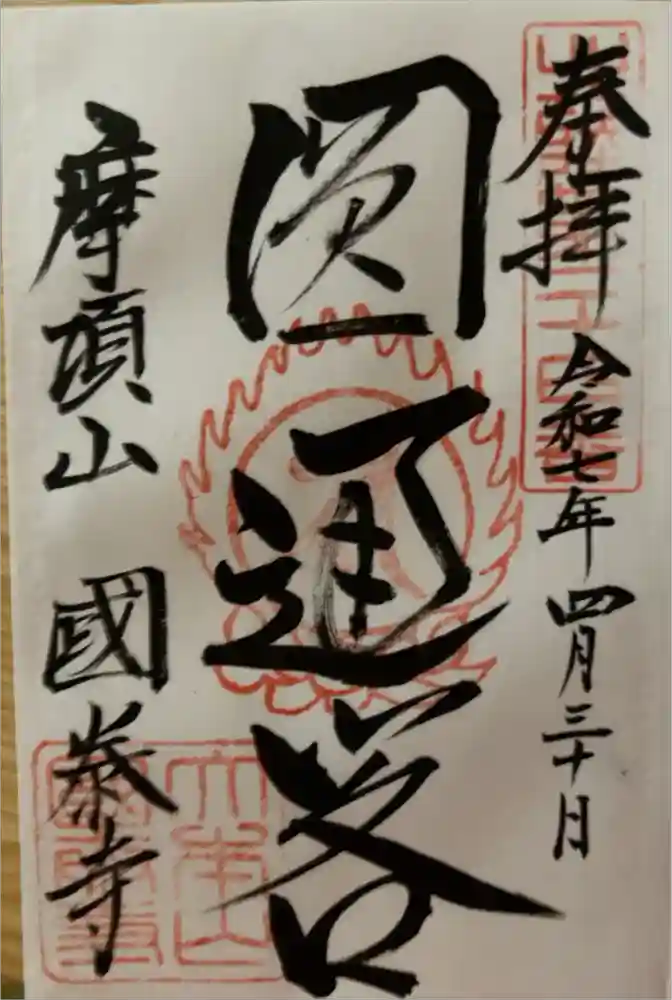 奉拝 令和七年四月三十日
圓通閣
摩頂山 國泰寺